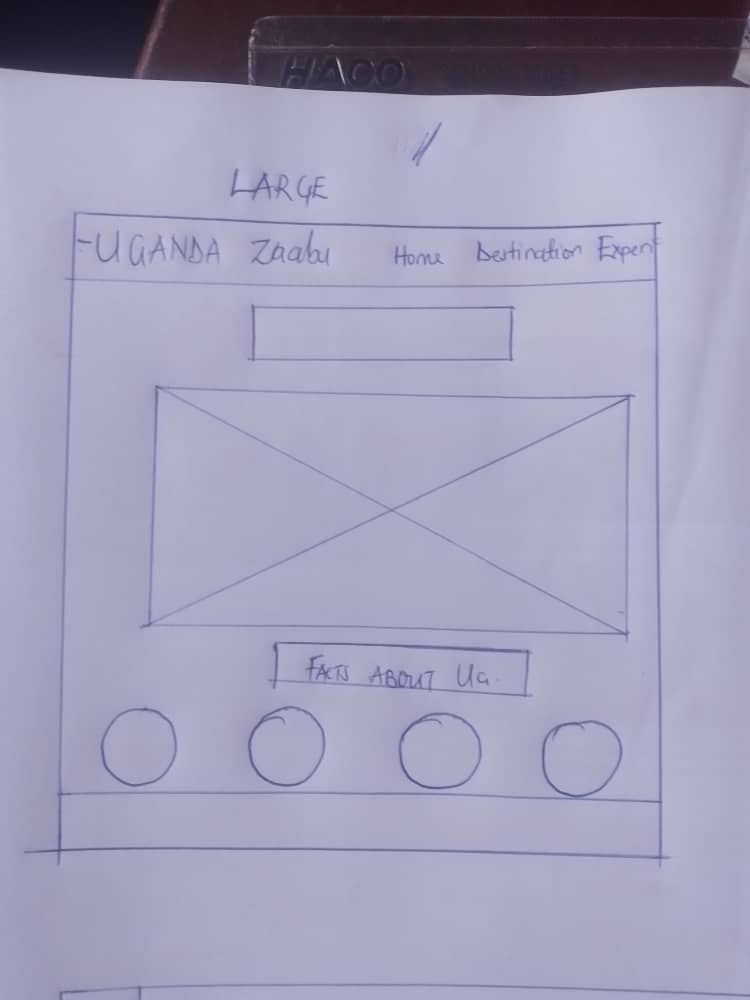 HACO
LARGE
UGANDA Zaabu Home Destination Experi
FACTS ABOUT UG.